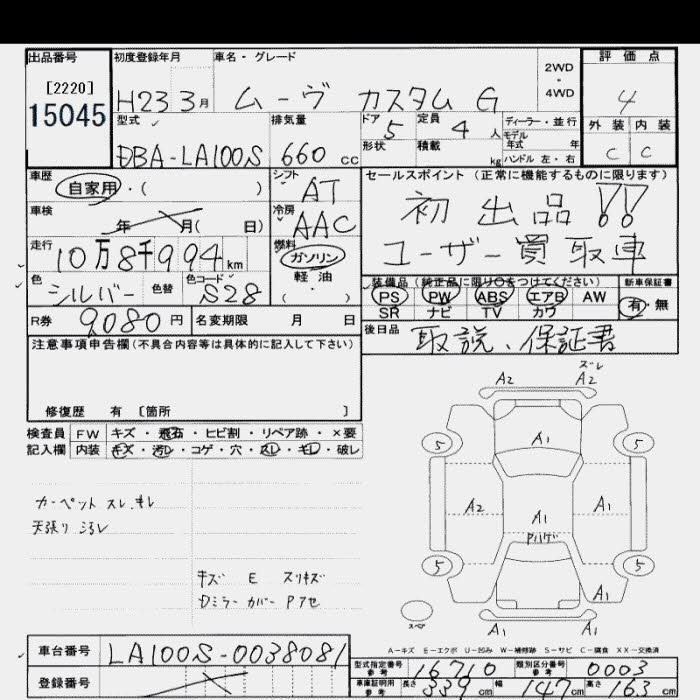 出品番号 初度登録年月 車名・グレード 2WD・4WD 評価点
[2220]
15045
H23 3月 ムーヴ カスタム G 4
型式 排気量 ドア 5 定員 4人 ディーラー・並行 外装 内装
形状 積載 kg モデル年式 年
ハンドル 左・右
DBA-LA100S 660 cc C C
車歴 シフト セールスポイント (正常に機能するものに限ります)
自家用・( ) AT 初出品!!
車検 冷房
年 月( 日) AAC ユーザー買取車
走行 燃料
10万8千994km ガソリン
軽油
( ・ )
色 シルバー 色替 色コード S28
装備品 (純正品に限り○をつけてください) 新車保証書
PS PW ABS エアB AW 有・無
SR ナビ TV カワ
R券 9080円 名変期限 月 日 後日品 取説、保証書
注意事項申告欄(不具合内容等は具体的に記入して下さい)
修復歴 有 〔箇所 〕
検査員 FW キズ・飛石・ヒビ割・リペア跡・×要
記入欄 内装 キズ・汚レ・コゲ・穴・スレ・キレ・破レ
カーペット スレ.キレ
天張り ヨゴレ
キズ E スリキズ
Dミラー カバー Pアセ
ズレ
A2 A2
5 A1 5
A2 A1 A1
Pハゲ
5 5
A1
スペア A1 A1
A-キズ E-エクボ U-凹み W-補修跡 S-サビ C-腐食 XX-交換済
車台番号 LA100S-0038081
登録番号
型式指定番号 参考 16710 類別区分番号 参考 0003
車庫証明用 参考 長さ 339cm 幅 147cm 高さ 163cm